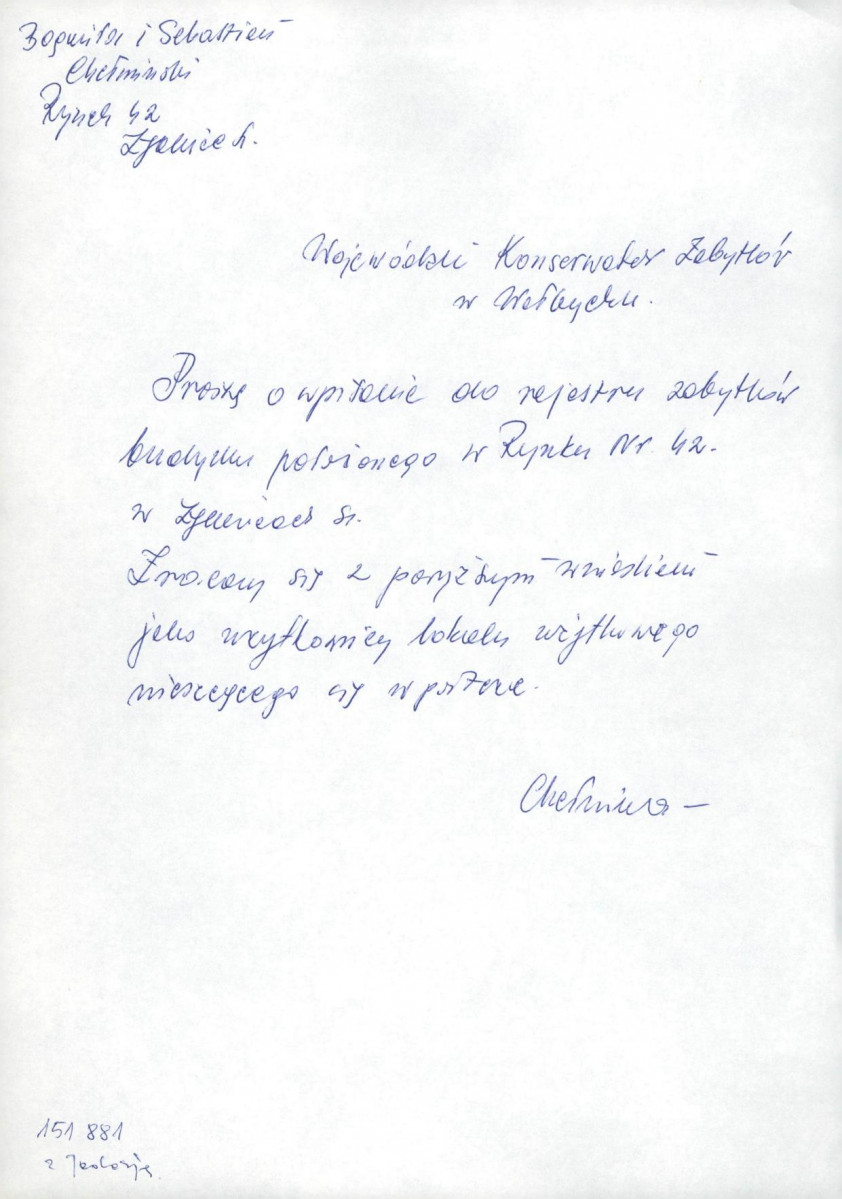 Bogumiła i Sebastian
Chełmiński
Rynek 42
Wojewódzki Konserwator Zabytków
w Wałbrzychu.
Proszę o wpisanie do rejestru zabytków
budynku położonego w Rynku Nr. 42.
w Ząbkowicach Śl.
Zwracamy się z powyższym wnioskiem
jako użytkownicy lokalu użytkowego
mieszczącego się w parterze.
151 881
z